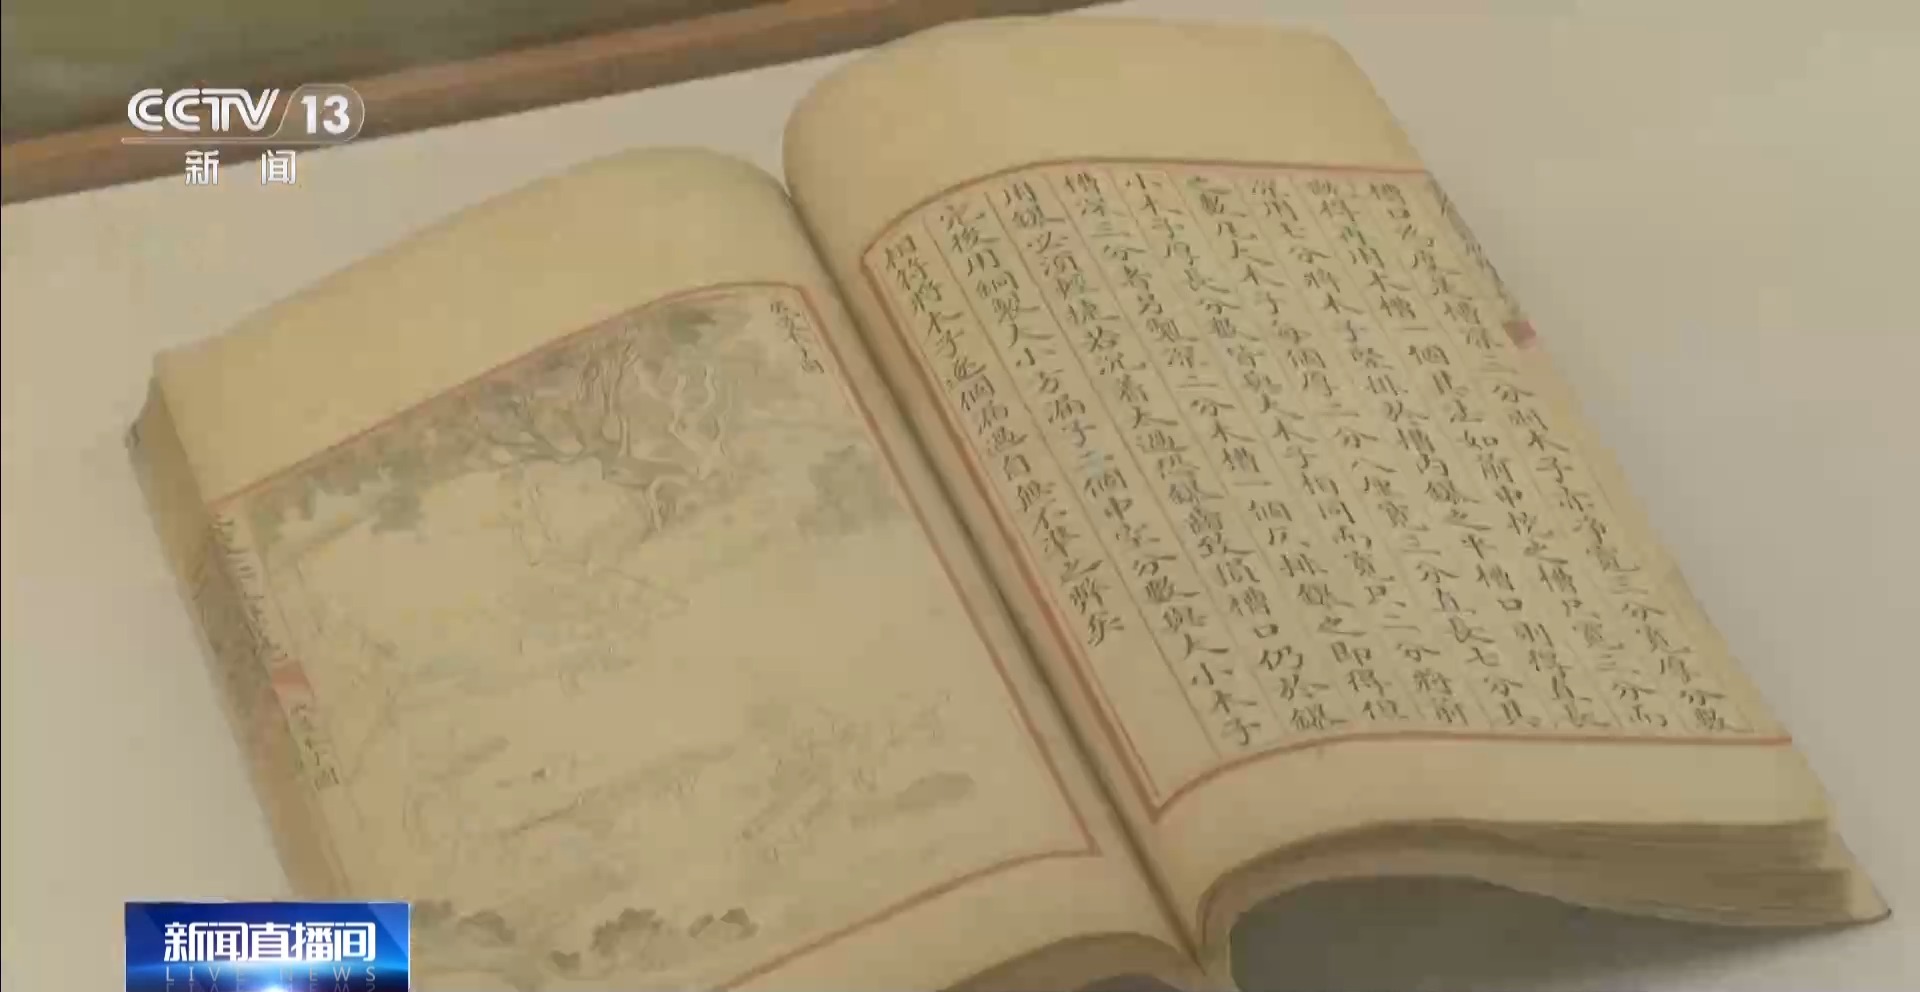 CCTV 13
新闻
槽口為度是槽深三分則木子亦淨寬三分寬厚分數
既得再用木槽一個其法如前中挖之槽只寬三分而
深用七分將木子豎排於槽內鉋之平槽口則得直長
之數凡大木子每個厚二分八厘寬三分直長七分其
小木子厚長分數皆與大木子相同而寬只二分將前
槽深三分者另製深二分木槽一個仄排鉋之即得但
用鉋必須輕捷若沉着太過恐鉋齒致損槽口仍於鉋
完後用銅製大小方漏子二個中空分數與大小木子
相符將木子逐個漏過自無不準之弊矣
新闻直播间
LIVE NEWS